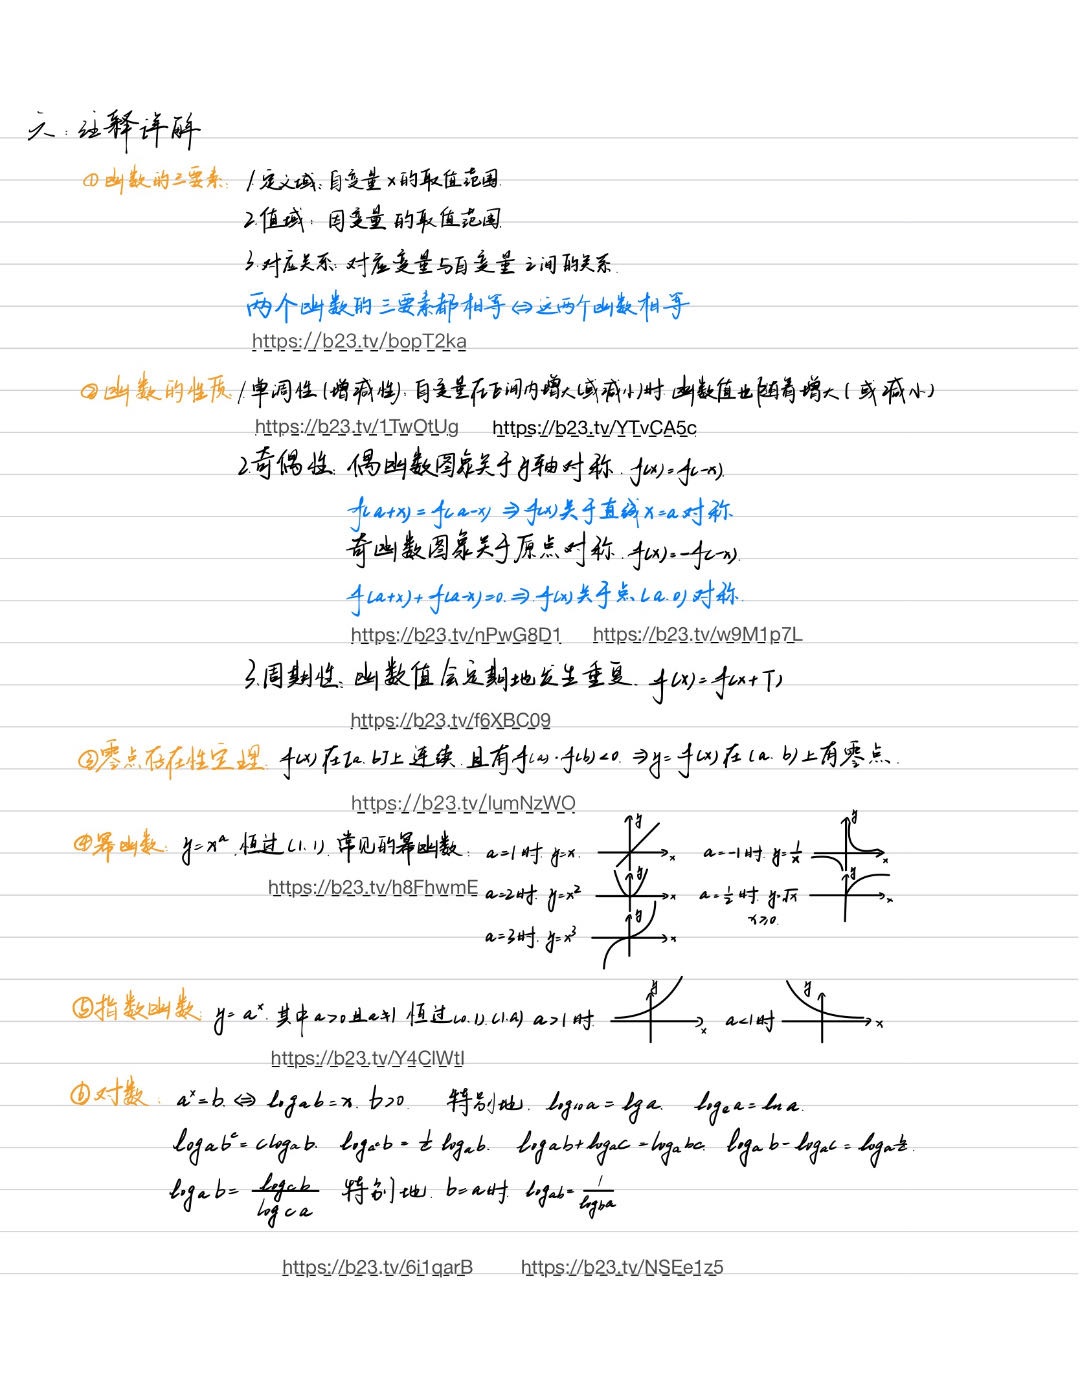 六.注释详解
①函数的三要素: 1.定义域:自变量x的取值范围
2.值域:因变量的取值范围
3.对应关系:对应变量与自变量之间的关系
两个函数的三要素都相等⇔这两个函数相等
https://b23.tv/bopT2ka
②函数的性质 1.单调性(增减性).自变量在区间内增大(或减小)时.函数值也随着增大(或减小)
https://b23.tv/1TwOtUg https://b23.tv/YTvCA5c
2.奇偶性:偶函数图象关于y轴对称.f(x)=f(-x).
f(a+x)=f(a-x)⇒f(x)关于直线x=a对称
奇函数图象关于原点对称.f(x)=-f(-x).
f(a+x)+f(a-x)=0.⇒f(x)关于点(a.0)对称.
https://b23.tv/nPwG8D1 https://b23.tv/w9M1p7L
3.周期性:函数值会定期地发生重复.f(x)=f(x+T)
https://b23.tv/f6XBC09
③零点存在性定理.f(x)在[a.b]上连续.且有f(a)·f(b)<0.⇒y=f(x)在(a.b)上有零点.
https://b23.tv/lumNzWO
④幂函数:y=xᵃ.恒过(1.1).常见的幂函数: a=1时.y=x. y x a=-1时.y=1/x y x
https://b23.tv/h8FhwmE a=2时.y=x² y x a=1/2时.y=√x y x
x≥0.
a=3时.y=x³ y x
⑤指数函数:y=aˣ.其中a>0且a≠1 恒过(0.1).(1.a) a>1时. y x a<1时 y x
https://b23.tv/Y4ClWtI
⑥对数: aˣ=b.⇔logₐb=x.b>0. 特别地.log₁₀a=lga. logₑa=lna.
logₐbᶜ=clogₐb. logₐᶜb=1/c logₐb. logₐb+logₐc=logₐbc. logₐb-logₐc=logₐb/c.
logₐb=log꜀b/log꜀a 特别地.b=a时.logₐb=1/log_b a
https://b23.tv/6i1qarB https://b23.tv/NSEe1z5